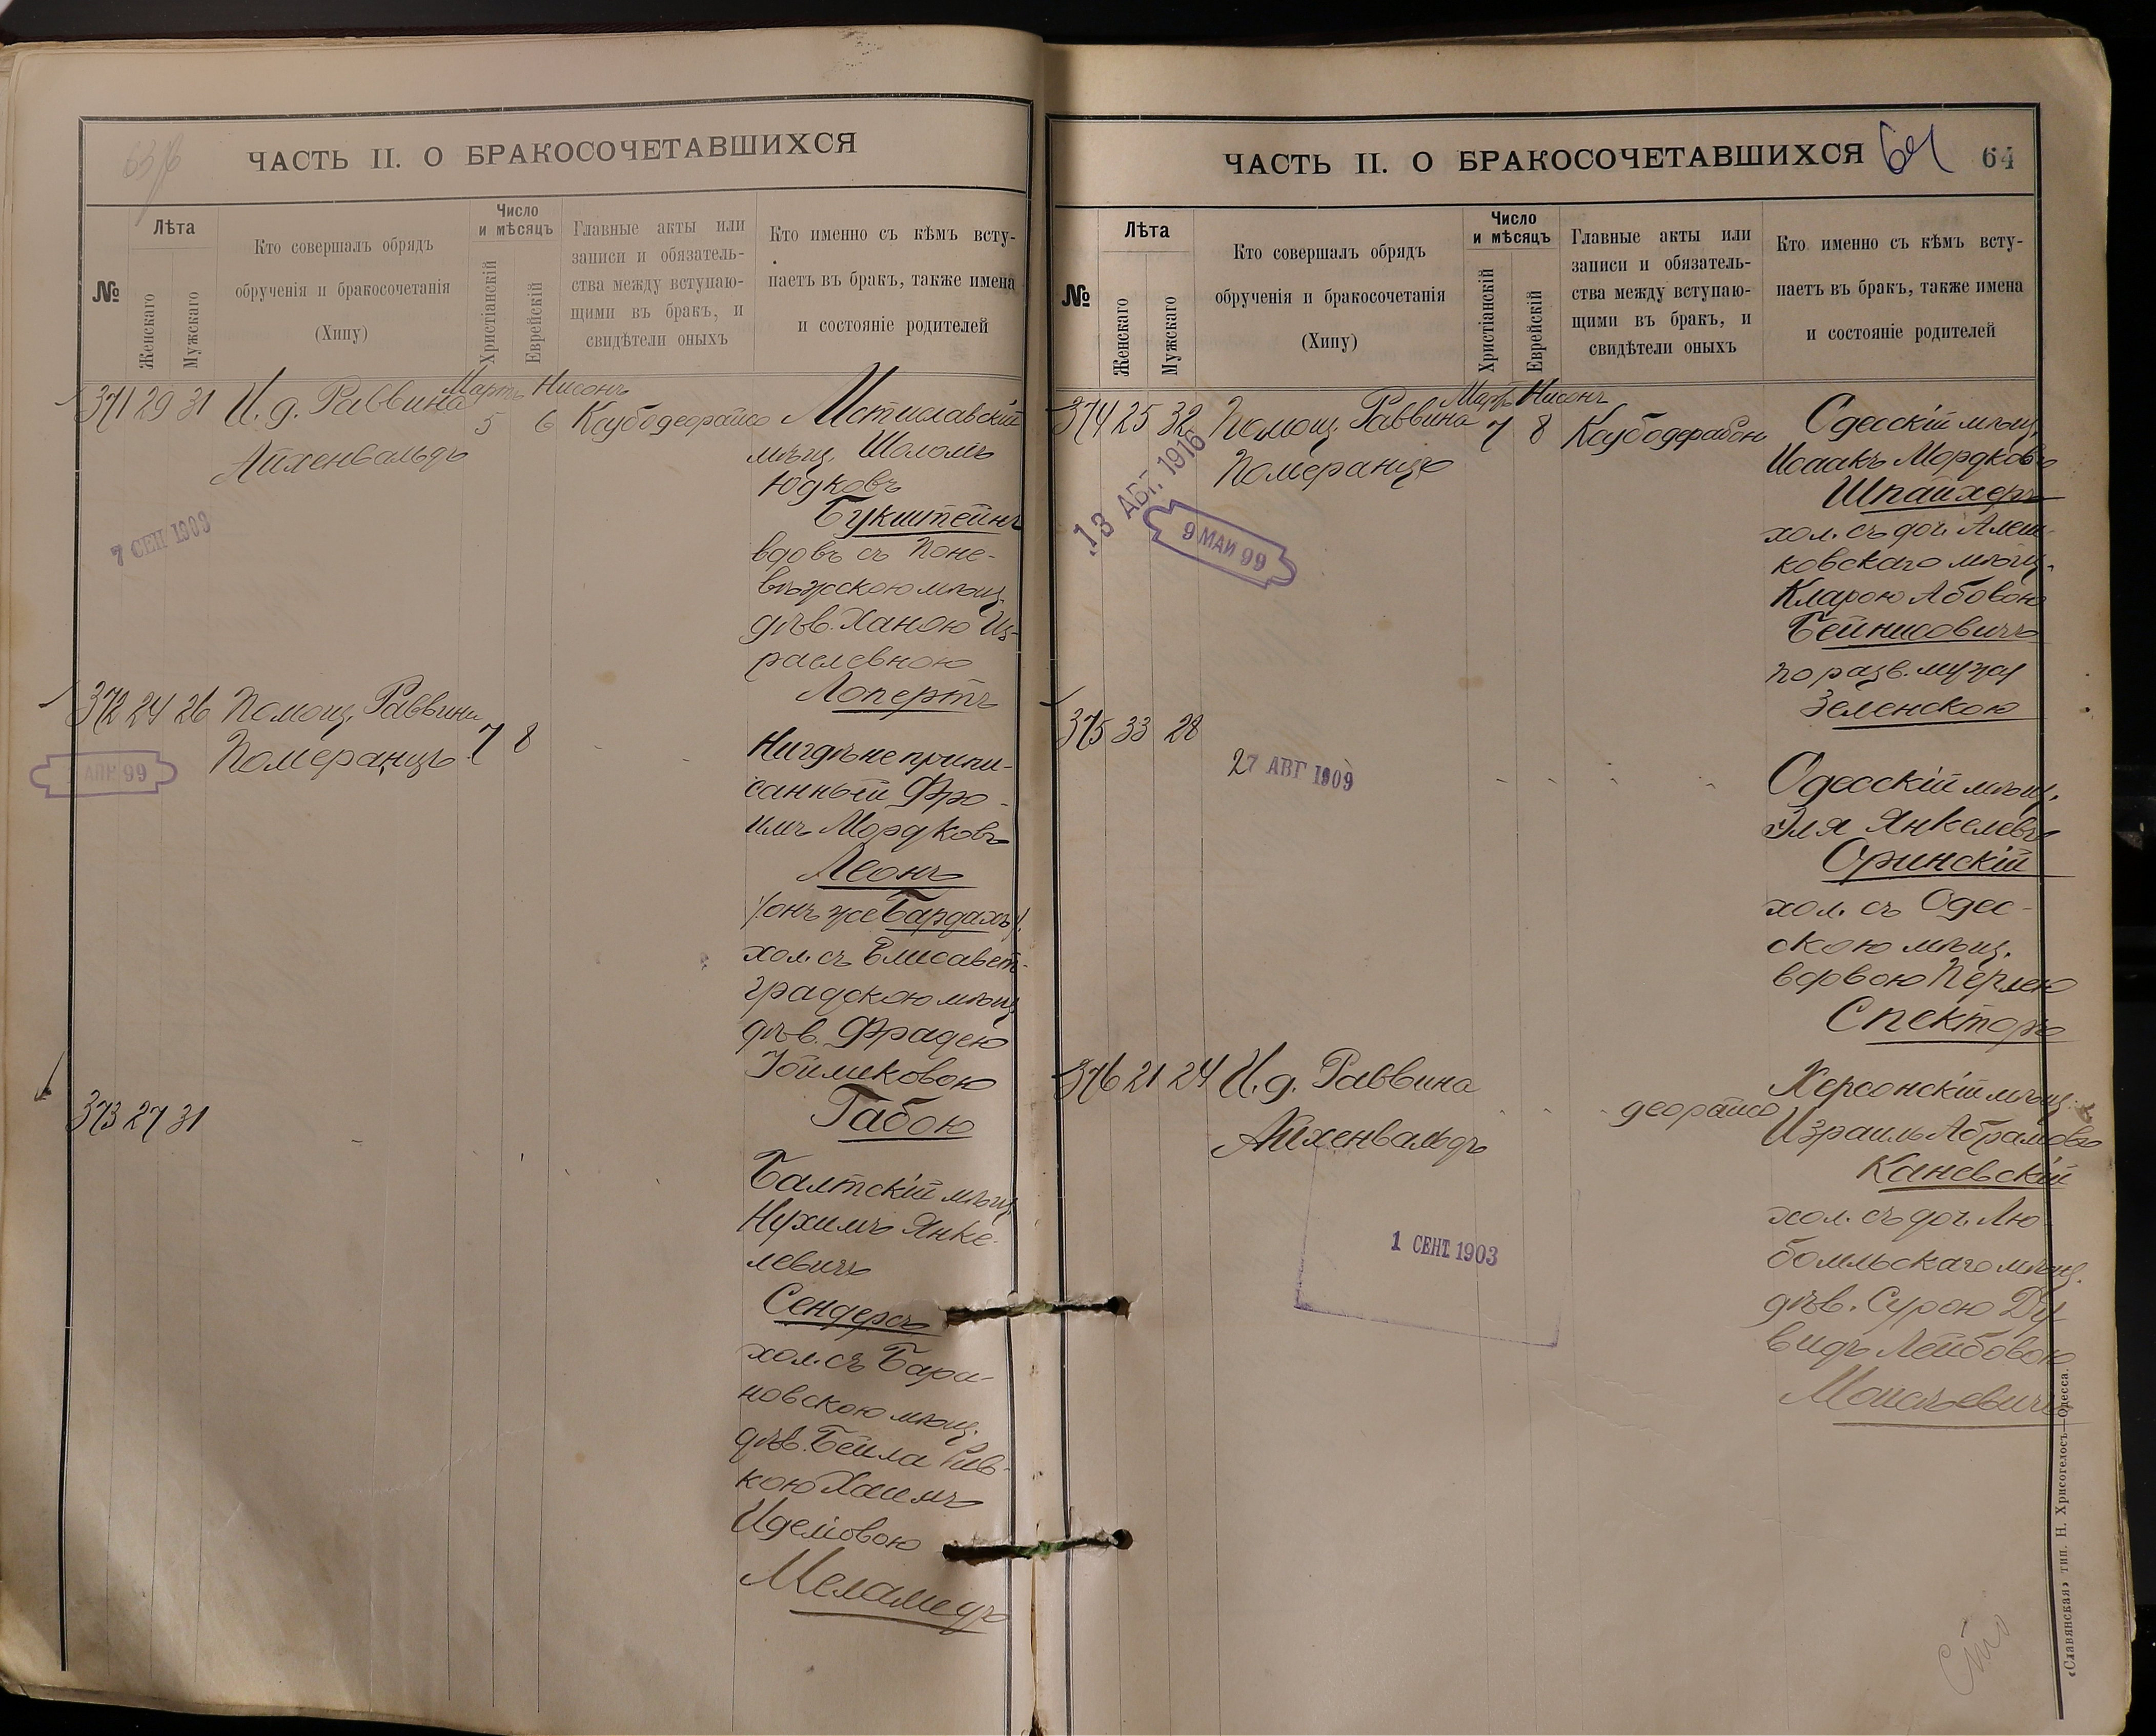 ЧАСТЬ II. О БРАКОСОЧЕТАВШИХСЯ
№
Лѣта
Женскаго
Мужскаго
Кто совершалъ обрядъ
обрученія и бракосочетанія
(Хипу)
Число
и мѣсяцъ
Христіанскій
Еврейскій
Главные акты или
записи и обязатель-
ства между вступаю-
щими въ бракъ, и
свидѣтели оныхъ
Кто именно съ кѣмъ всту-
паетъ въ бракъ, также имена
и состояніе родителей
Мартъ Нисонъ
371 29 31 И. д. Раввина 5 6
Айхенвальдъ
7 СЕН 1909
Мстиславскій
мѣщ. Шоломъ
Юдковъ
Букштейнъ
вдовъ съ Поне-
вѣжскою мѣщ.
дѣв. Ханою Из-
раелевною
Лопертъ
372 24 26 Помощ. Раввина 7 8
Померанцъ
АПР 99
Нигдѣ не припи-
санный Фро-
имъ Мордковъ
Леонъ
/:онъ же Бардахъ:/
хол. съ Елисавет-
градскою мѣщ.
дѣв. Фрадею
Габою
373 27 31
Балтскій мѣщ.
Нухимъ Янке-
левичъ
Сендеръ
хол. съ Бара-
новскою мѣщ.
дѣв. Бейла Рив-
кою Хаимъ
Меламедъ
ЧАСТЬ II. О БРАКОСОЧЕТАВШИХСЯ
64 64
№
Лѣта
Женскаго
Мужскаго
Кто совершалъ обрядъ
обрученія и бракосочетанія
(Хипу)
Число
и мѣсяцъ
Христіанскій
Еврейскій
Главные акты или
записи и обязатель-
ства между вступаю-
щими въ бракъ, и
свидѣтели оныхъ
Кто именно съ кѣмъ всту-
паетъ въ бракъ, также имена
и состояніе родителей
Мартъ Нисонъ
374 25 32 Помощ. Раввина 7 8
Померанцъ
13 АВГ. 1916
9 МАЙ 99
Одесскій мѣщ.
Исаакъ Мордковъ
Шпайхеръ
хол. съ доч. Алеш-
ковскаго мѣщ.
Кларою Абовою
Бейнисовичъ
по разв. мужу
Зеленскою
375 33 28
27 АВГ 1909
Одесскій мѣщ.
Эля Янкелевъ
Оринскій
хол. съ Одес-
скою мѣщ.
вдовою Перлею
Спекторъ
376 21 24 И. д. Раввина
Айхенвальдъ
1 СЕНТ. 1903
Херсонскій мѣщ.
Израиль Абрамовъ
Каневскій
хол. съ доч. Лю-
бомльскаго мѣщ.
дѣв. Сурою Ду-
видъ Лейбовою
Моисѣевичъ
«Славянская» тип. Н. Хрисогелосъ—Одесса.